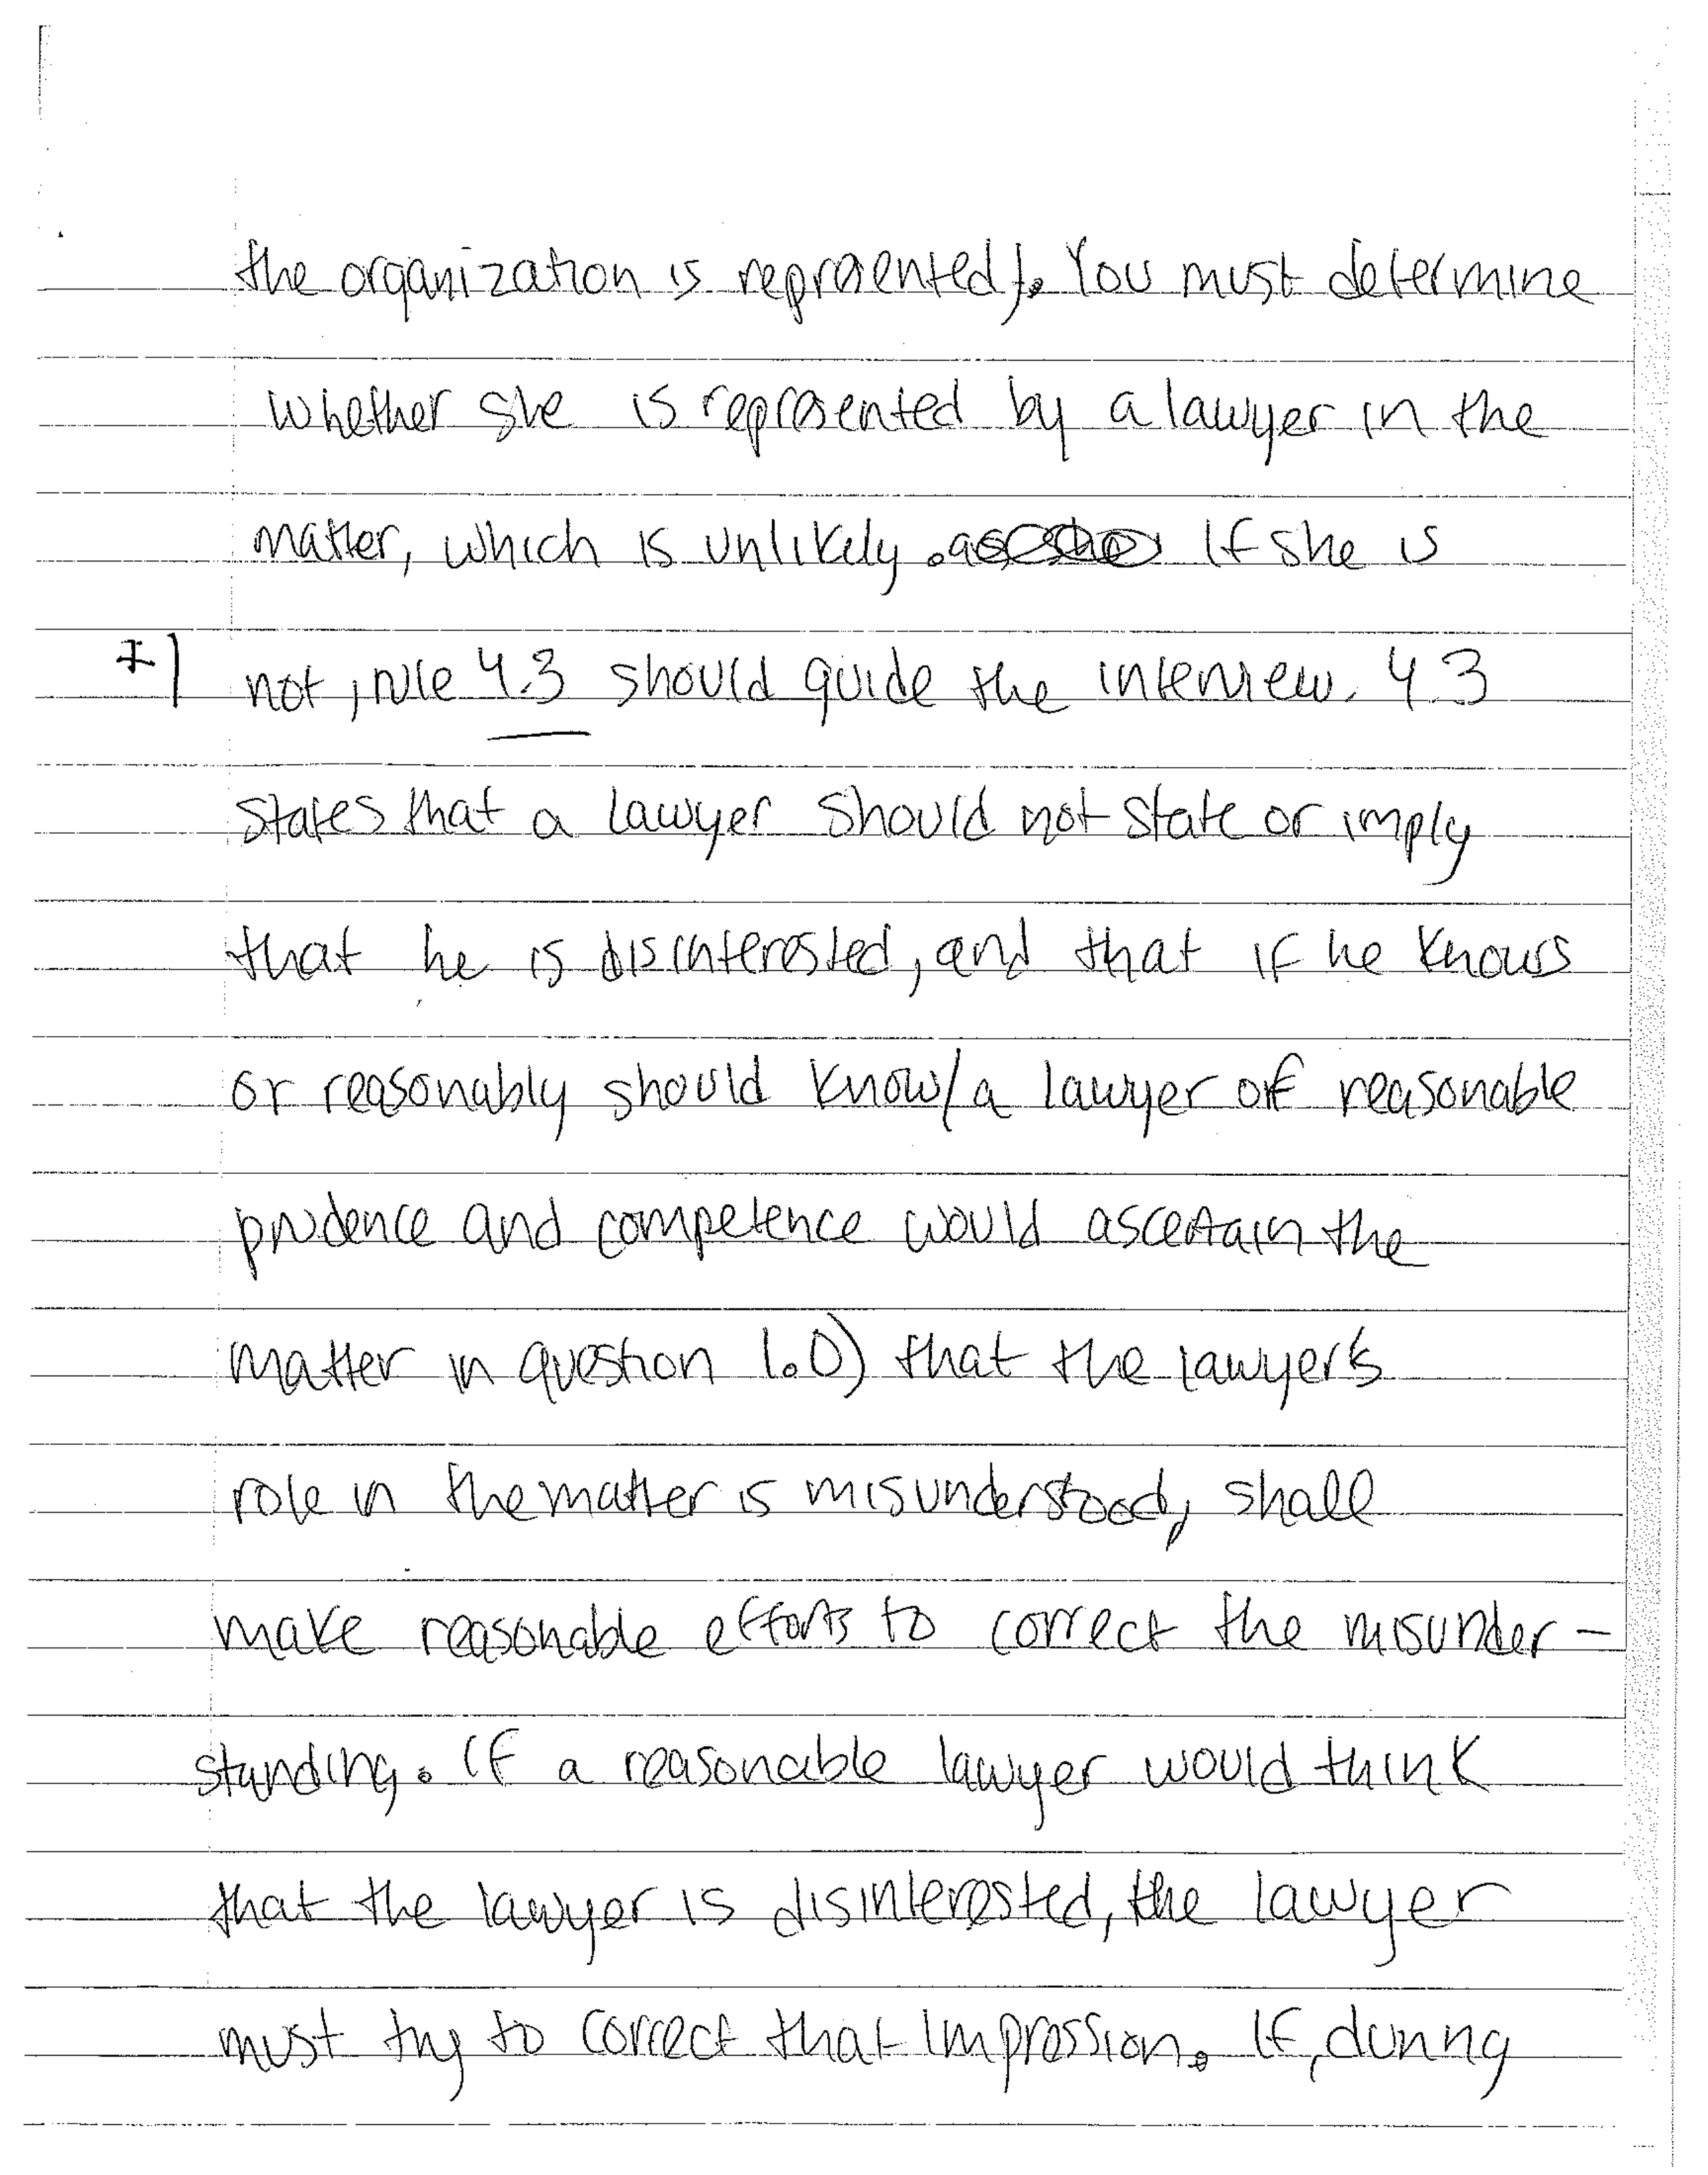 the organization is represented). You must determine
whether she is represented by a lawyer in the
matter, which is unlikely. If she is
not, rule 4.3 should guide the interview. 4.3
states that a lawyer should not state or imply
that he is disinterested, and that if he knows
or reasonably should know/a lawyer of reasonable
prudence and competence would ascertain the
matter in question 1.0) that the lawyer's
role in the matter is misunderstood, shall
make reasonable efforts to correct the misunder-
standing. If a reasonable lawyer would think
that the lawyer is disinterested, the lawyer
must try to correct that impression. If, during